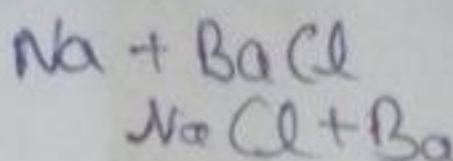 Na + BaCl
NaCl + Ba